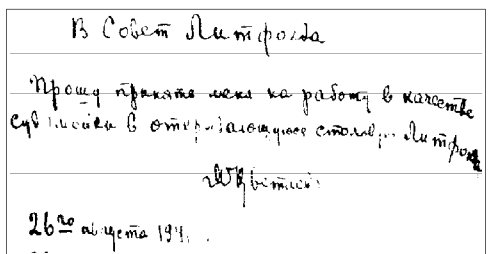 В Совет Литфонда
Прошу принять меня на работу в качестве
судомойки в открывающуюся столовую Литфонда
МЦветаева
26го августа 1941